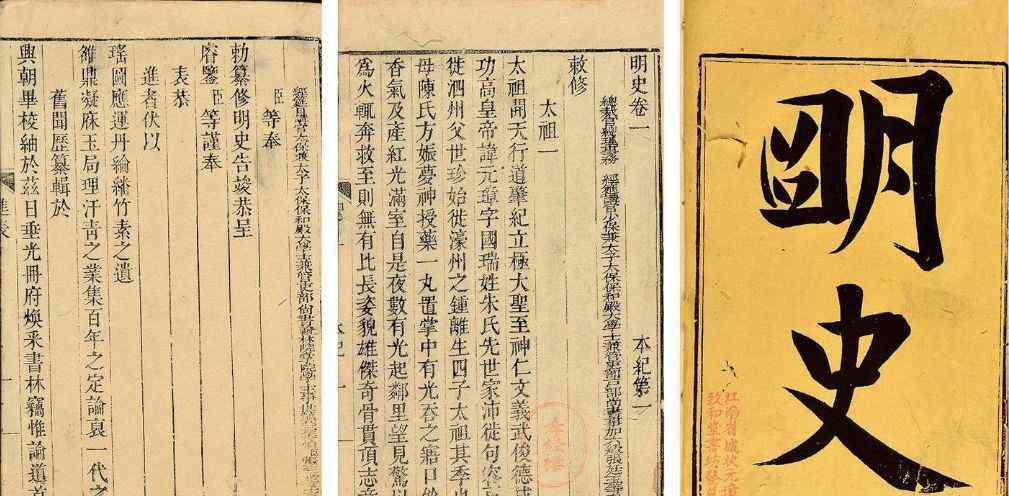 朙史
江南省城狀元境
明史卷一 本紀第一
保兼太子太保保和殿大學士兼管吏部
敕修
太祖一
太祖開天行道肇紀立極大聖至神仁文義武俊德成
功高皇帝諱元璋字國瑞姓朱氏先世家沛徙句容
徙泗州父世珍始徙濠州之鍾離生四子太祖其季也
母陳氏方娠夢神授藥一丸置掌中有光吞之寤口
香氣及產紅光滿室自是夜數有光起鄰里望見驚以
爲火輒奔救至則無有比長姿貌雄傑奇骨貫頂志意
保兼太子太保保和殿大學士兼管吏部尚書
臣等奉
勅纂修明史告竣恭呈
睿鑒臣等謹奉
表恭
進者伏以
瑤圖應運丹綸繙竹素之遺
雒鼎凝庥玉局理汗青之業集百年之定論裒一代之
舊聞歷纂輯於
興朝畢校紬於茲日垂光冊府煥采書林竊惟論道首